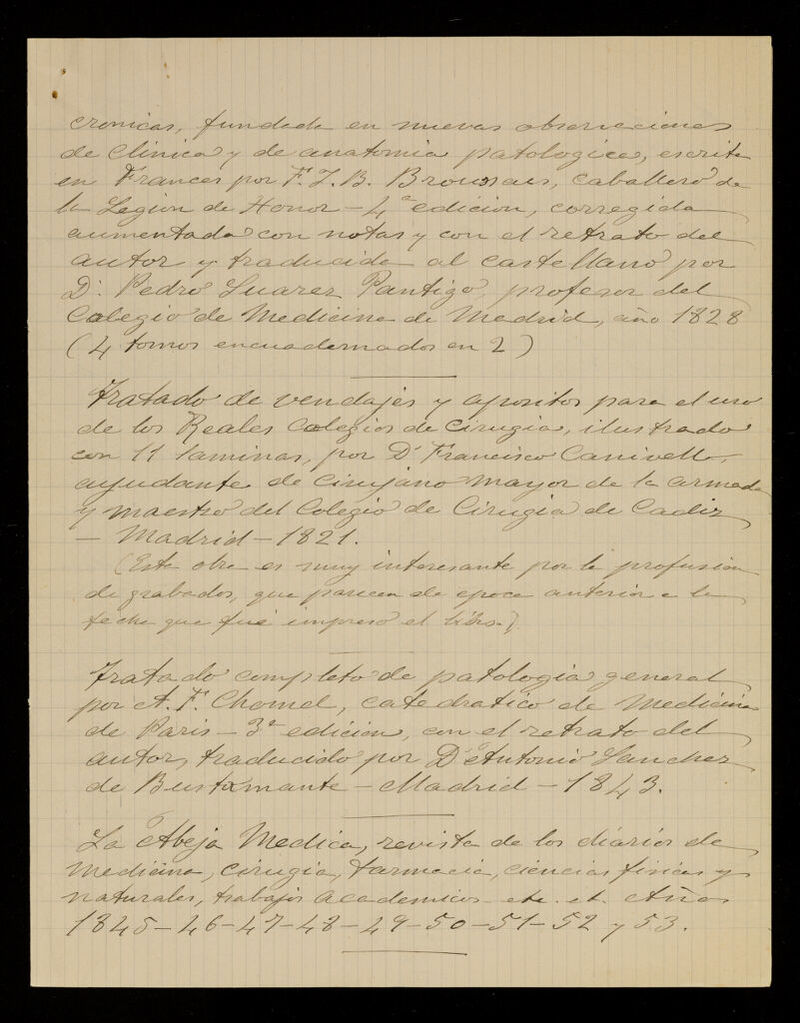 cronicas, fundada en nuevas observaciones
de clinica y de anatomia patologica, escrita
en Frances por F. J. B. Broussais, caballero de
la Legion de Honor - 4ª edicion, corregida
aumentada con notas y con el retrato del
autor y traducida al castellano por
D. Pedro Suarez Pantigo, profesor del
Colegio de Medicina de Madrid, año 1828
(4 tomos encuadernados en 2)
Tratado de vendajes y apositos para el uso
de los Reales Colegios de Cirugia, ilustrado
con 11 laminas, por D. Francisco Canivell,
ayudante de Cirujano mayor de la armada
y maestro del Colegio de Cirugia de Cadiz
- Madrid - 1821.
(Esta obra es muy interesante por la profusion
de grabados, que parecen de epoca anterior a la
fecha que fué impreso el libro.)
Tratado completo de patologia general
por A. F. Chomel, catedratico de Medicina
de Paris - 3ª edicion, con el retrato del
autor, traducido por D. Antonio Sanchez
de Bustamante - Madrid - 1843.
La Abeja Medica, revista de los diarios de
medicina, cirugia, farmacia, ciencias fisicas y
naturales, trabajos academicos etc. et. Años
1845-46-47-48-49-50-51-52 y 53.